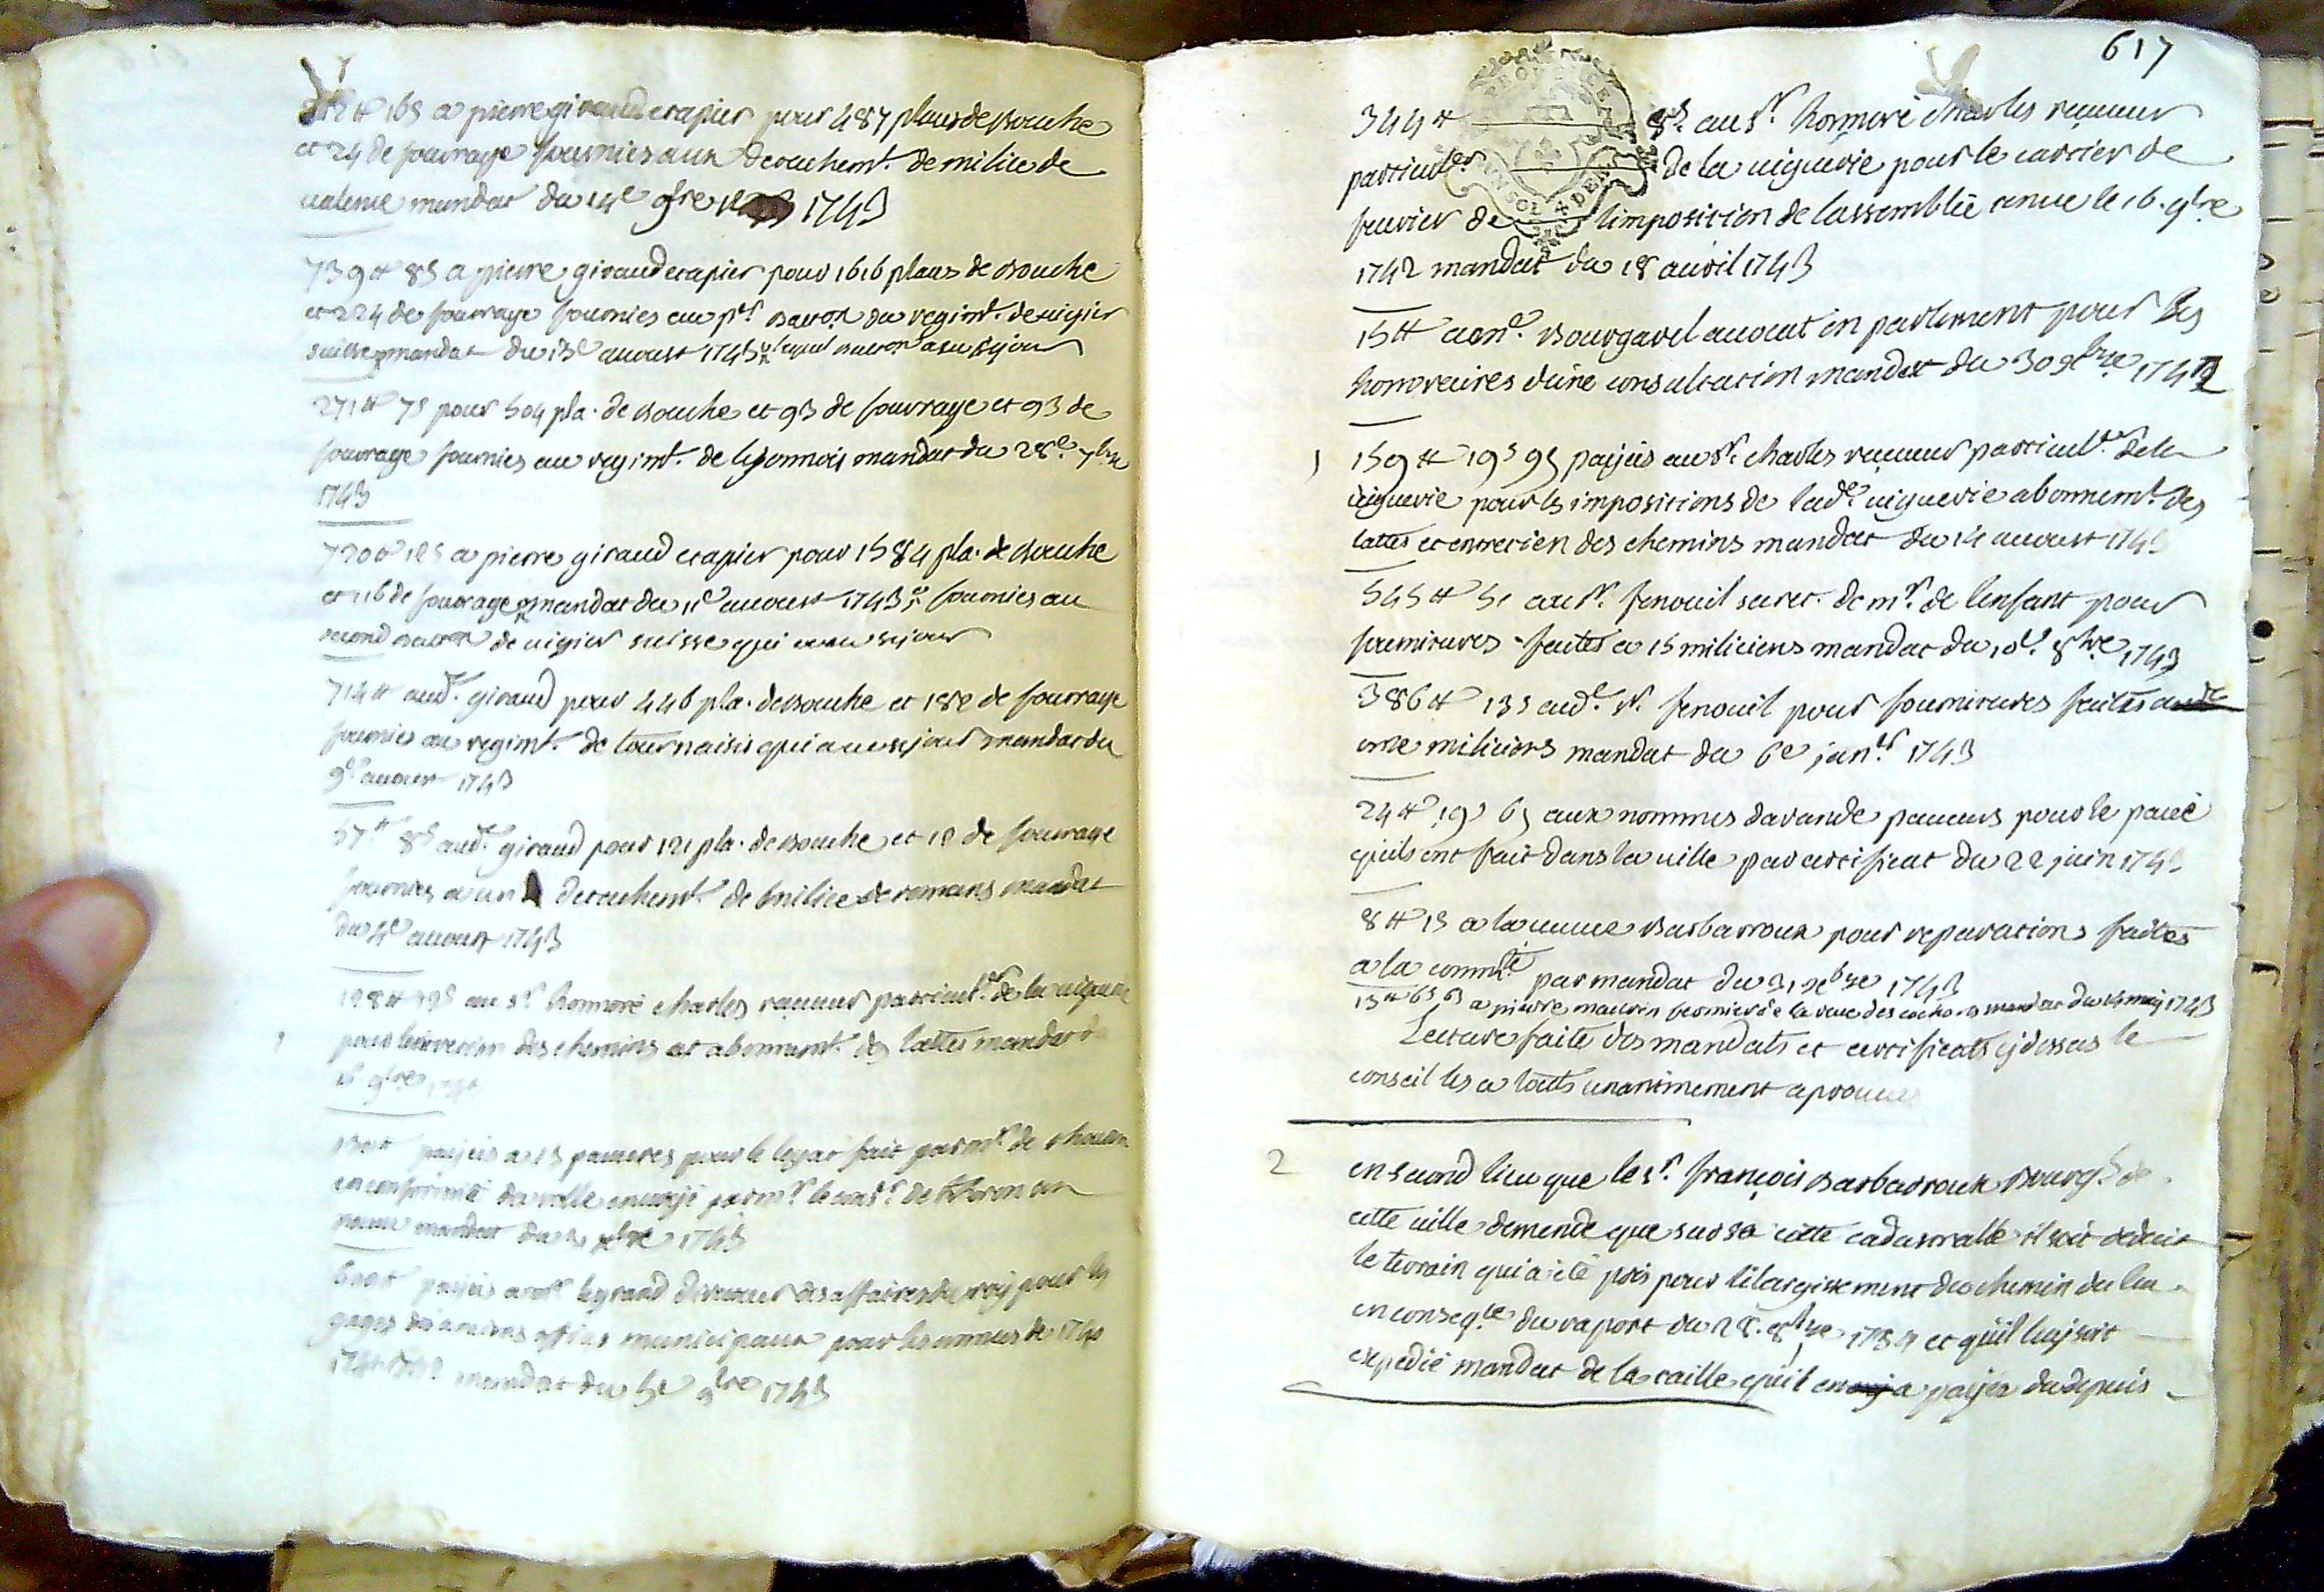 16s a pierre giraud etapier pour 487 places de bouche
et 24 de fourrage fournies aux detachemt. de milice de
valence mandat du 14e 9bre 1743
739 ₶ 8s a pierre giraud etapier pour 1616 places de bouche
et 224 de fourrage fournies au pr. baton du regimt. de vigier
suisse mandat du 13e aoust 1743 lequel baton a eu sejour
271 ₶ 7s pour 504 pla. de bouche et 93 de fourrage et 93 de
fourrage fournies au regimt. de lyonnois mandat du 28e 7bre
1743
720 ₶ 12s a pierre giraud etapier pour 1584 pla. de bouche
et 116 de fourrage mandat du 11e aoust 1743 fournies au
second baton de vigier suisse qui a eu sejour
714 ₶ aud. giraud pour 446 pla. de bouche et 182 de fourrage
fournies au regimt. de tournaisis qui a eu sejour mandat du
9e aoust 1743
57 ₶ 8s aud. giraud pour 121 pla. de bouche et 12 de fourrage
fournies a un detachemt. de milice de romans mandat
du 4e aoust 1743
198 ₶ 19s au sr. honnoré charles receveur particulr. de la viguerie
pour lentretien des chemins et abonnemt. des lattes mandat
9bre
payés a 13 pauvres pour le legat fait par mr. de
en conformité du rolle envoyé par mr. le
mandat du 1743
payés a mr. legrand directeur des affaires du roy pour les
gages des anciens offices municipaux pour les annees de 1740
mandat du 5e 9bre 1743
617
344 ₶ 8s. au sr. honnoré charles receveur
particulier de la viguerie pour le cartier de
fevrier de limposition de lassemblée tenue le 16. 9bre
1742 mandat du 18 avril 1743
15 ₶ a me. bourgarel avocat en parlement pour les
honoraires dune consultation mandat du 30
1 159 ₶ 19s 9s payés au sr. charles receveur particulr. de la
viguerie pour les impositions de lade. viguerie abonnemt. des
lattes et entretien des chemins mandat du 14 aoust
545 ₶ 5s au sr. fenouil secret. de mr. de lenfant pour
fournitures faites a 15 miliciens mandat du 10e. 8bre 1743
386 ₶ 13s aud. sr. fenouil pour fournitures faites
onze miliciens mandat du 6e janer. 1743
24 ₶ 19s 6s aux nommés davande paveurs pour le pavé
quils ont fait dans la ville par certificat du 22 juin
8 ₶ 15 a la veuve barbarroux pour reparations faites
a la commté par mandat du 31 xbre 1743
13 ₶ 6s 6 a pierre maurin fermier de la rave des cochons mandat du 14 may 1743
Lecture faite des mandats et certificats cy dessus le
conseil les a touts unanimement aprouvé
2 en second lieu que le sr. françois barbarroux bourgs. de
cette ville demende que sur sa cotte cadastralle il soit deduit
le terrain qui a eté pris pour lélargissement du chemin du
en conseqce du raport du 28. 8bre et quil luy soit
expedié mandat de la taille quil en a payée du depuis